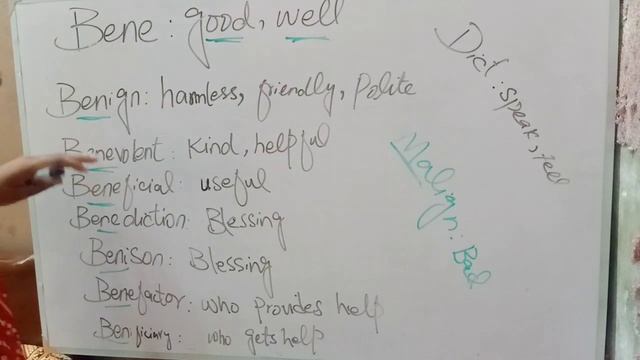 Bene: good, well
Benign: harmless, friendly, Polite
Benevolent: Kind, helpful
Beneficial: useful
Benediction: Blessing
Benison: Blessing
Benefactor: who provides help
Beneficiary: who gets help
Dict: speak, tell
Malign: Bad